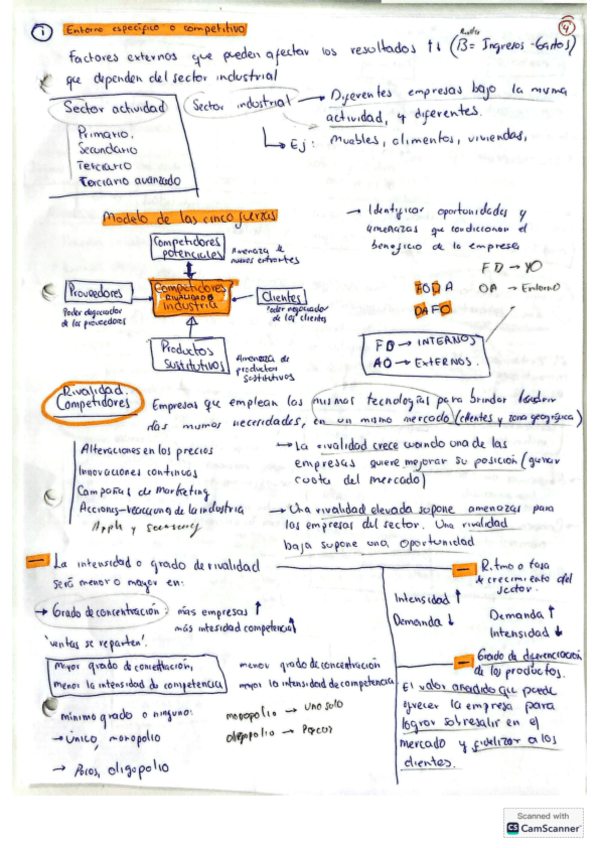 1 Entorno específico o competitivo
4
Factores externos que pueden afectar los resultados ↑↓ (B = Ingresos - Gastos)
que dependen del sector industrial
Sector actividad
Primario,
Secundario
Terciario
Terciario avanzado
Sector industrial → Diferentes empresas bajo la misma
actividad, y diferentes.
Ej: muebles, alimentos, viviendas,
Modelo de las cinco fuerzas
→ Identificar oportunidades y
amenazas que condicionan el
beneficio de la empresa
Competidores
potenciales
Amenaza de
nuevos entrantes
Proveedores
Poder negociador
de los proveedores
Competidores
rivalidad
industria
Clientes
Poder negociador
de los clientes
Productos
sustitutivos
Amenaza de
productos
sustitutivos
FD → YO
OA → Entorno
FODA
DAFO
FD → INTERNOS
AO → EXTERNOS.
Rivalidad
Competidores
Empresas que emplean las mismas tecnologías para brindar
las mismas necesidades, en un mismo mercado (clientes y zona geográfica)
Alteraciones en los precios
Innovaciones continuas
Campañas de marketing
Acciones-reacciones de la industria
→ La rivalidad crece cuando una de las
empresas quiere mejorar su posición (ganar
cuota del mercado)
→ Una rivalidad elevada supone amenazas para
las empresas del sector. Una rivalidad
baja supone una oportunidad
La intensidad o grado de rivalidad
será menor o mayor en:
→ Grado de concentración: más empresas ↑
más intesidad competencia ↑
'ventas se reparten'.
Mayor grado de concentración,
menor la intensidad de competencia
menor grado de concentración
mayor la intensidad de competencia
mínimo grado o ninguno:
→ único, monopolio
→ Pocos, oligopolio
monopolio → uno solo
oligopolio → Pocos
Ritmo o tasa
de crecimiento del
sector.
Intensidad ↑
Demanda ↓
Demanda ↑
Intensidad ↓
Grado de diferenciación
de los productos.
El valor añadido que puede
ofrecer la empresa para
lograr sobresalir en el
mercado y fidelizar a los
clientes.
Scanned with
CS CamScanner